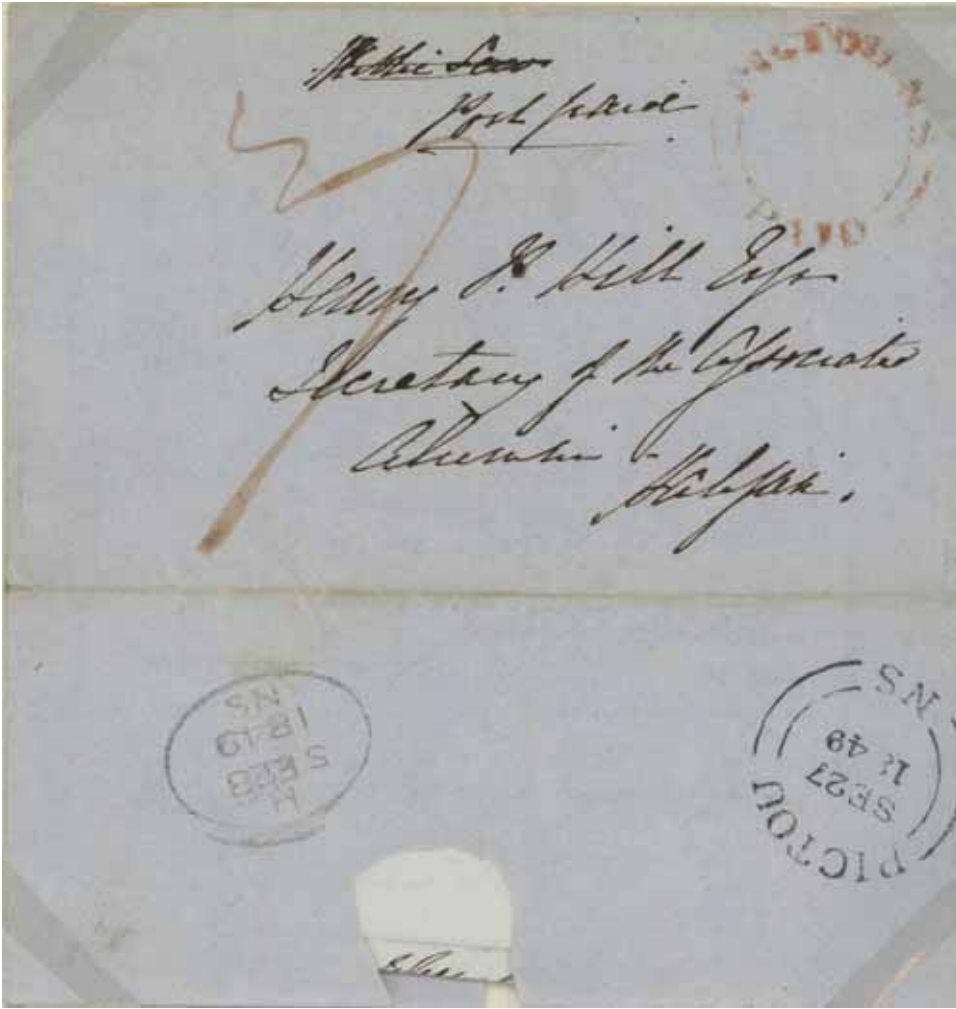 Post paid
PAID
7
Henry P. Hill Esqr
Secretary of the Associate
Halifax.
H
SE28
1849
NS
PICTOU NS
SE27
1849